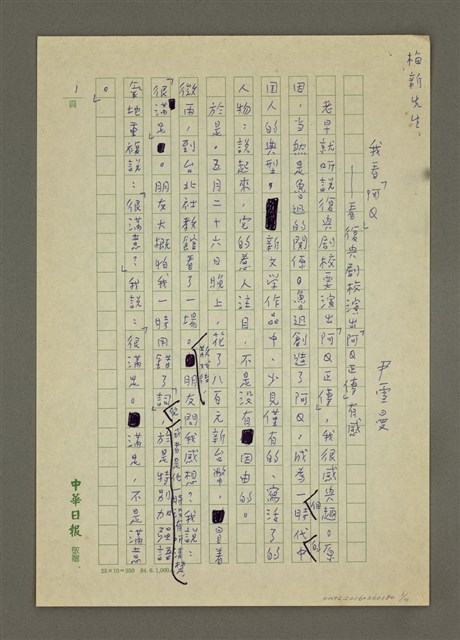 梅新先生:
我看「阿Q」
——看復興劇校演出「阿Q正傳」有感
尹雪曼
老早就听說復興劇校要演出「阿Q正傳」,我很感興趣。原
因,当然是魯迅的関係。魯迅創造了阿Q,成為一個時代的中
国人的典型。新文学作品中,少見僅有的、寫活了的
人物;說起來,它的惹人注目,不是沒有因由的。
於是,五月二十六日晚上,花了八百元新台幣,冒着
微雨,到台北社教館看了一場。散戲後,朋友問我感想?我說:
「很滿足。」朋友大概怕我一時用錯了詞,於是特別加強語
氣地重複說:「很滿意?」我說:「很滿足。滿足,不是滿意
。」
1
頁
中華日報
25×10=250 84.6.1,000